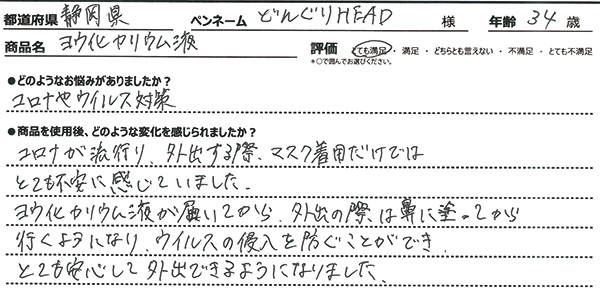 都道府県 静岡県 ペンネーム どんぐりHEAD 様 年齢 34 歳
商品名 ヨウ化カリウム液 評価 とても満足 ・ 満足 ・ どちらとも言えない ・ 不満足 ・ とても不満足
*○で囲んでお選びください。
●どのようなお悩みがありましたか？
コロナやウイルス対策
●商品を使用後、どのような変化を感じられましたか？
コロナが流行り、外出する際、マスク着用だけでは
とても不安に感じていました。
ヨウ化カリウム液が届いてから、外出の際は鼻に塗ってから
行くようになり、ウイルスの侵入を防ぐことができ、
とても安心して外出できるようになりました。